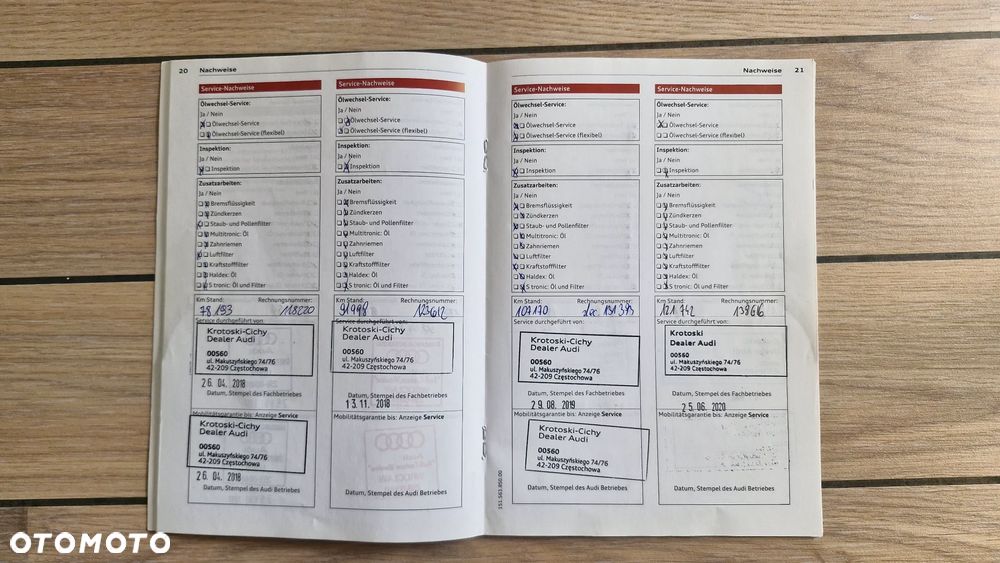 20 Nachweise
Service-Nachweise
Ölwechsel-Service:
Ja / Nein
Ölwechsel-Service
Ölwechsel-Service (flexibel)
Inspektion:
Ja / Nein
Inspektion
Zusatzarbeiten:
Ja / Nein
Bremsflüssigkeit
Zündkerzen
Staub- und Pollenfilter
Multitronic: Öl
Zahnriemen
Luftfilter
Kraftstofffilter
Haldex: Öl
S tronic: Öl und Filter
Km Stand: Rechnungsnummer:
78 193 118820
Service durchgeführt von:
Krotoski-Cichy
Dealer Audi
00560
ul. Makuszyńskiego 74/76
42-209 Częstochowa
26. 04. 2018
Datum, Stempel des Fachbetriebes
Mobilitätsgarantie bis: Anzeige Service
Krotoski-Cichy
Dealer Audi
00560
ul. Makuszyńskiego 74/76
42-209 Częstochowa
26. 04. 2018
Datum, Stempel des Audi Betriebes
Service-Nachweise
Ölwechsel-Service:
Ja / Nein
Ölwechsel-Service
Ölwechsel-Service (flexibel)
Inspektion:
Ja / Nein
Inspektion
Zusatzarbeiten:
Ja / Nein
Bremsflüssigkeit
Zündkerzen
Staub- und Pollenfilter
Multitronic: Öl
Zahnriemen
Luftfilter
Kraftstofffilter
Haldex: Öl
S tronic: Öl und Filter
Km Stand: Rechnungsnummer:
91998 123612
Service durchgeführt von:
Krotoski-Cichy
Dealer Audi
00560
ul. Makuszyńskiego 74/76
42-209 Częstochowa
Datum, Stempel des Fachbetriebes
13. 11. 2018
Mobilitätsgarantie bis: Anzeige Service
Datum, Stempel des Audi Betriebes
Nachweise 21
Service-Nachweise
Ölwechsel-Service:
Ja / Nein
Ölwechsel-Service
Ölwechsel-Service (flexibel)
Inspektion:
Ja / Nein
Inspektion
Zusatzarbeiten:
Ja / Nein
Bremsflüssigkeit
Zündkerzen
Staub- und Pollenfilter
Multitronic: Öl
Zahnriemen
Luftfilter
Kraftstofffilter
Haldex: Öl
S tronic: Öl und Filter
Km Stand: Rechnungsnummer:
107170 zlec 131393
Service durchgeführt von:
Krotoski-Cichy
Dealer Audi
00560
ul. Makuszyńskiego 74/76
42-209 Częstochowa
Datum, Stempel des Fachbetriebes
29. 08. 2019
Mobilitätsgarantie bis: Anzeige Service
Krotoski-Cichy
Dealer Audi
00560
ul. Makuszyńskiego 74/76
42-209 Częstochowa
Datum, Stempel des Audi Betriebes
151.563.850.00
Service-Nachweise
Ölwechsel-Service:
Ja / Nein
Ölwechsel-Service
Ölwechsel-Service (flexibel)
Inspektion:
Ja / Nein
Inspektion
Zusatzarbeiten:
Ja / Nein
Bremsflüssigkeit
Zündkerzen
Staub- und Pollenfilter
Multitronic: Öl
Zahnriemen
Luftfilter
Kraftstofffilter
Haldex: Öl
S tronic: Öl und Filter
Km Stand: Rechnungsnummer:
121 742 138616
Service durchgeführt von:
Krotoski
Dealer Audi
00560
ul. Makuszyńskiego 74/76
42-209 Częstochowa
Datum, Stempel des Fachbetriebes
25. 06. 2020
Mobilitätsgarantie bis: Anzeige Service
Datum, Stempel des Audi Betriebes
OTOMOTO